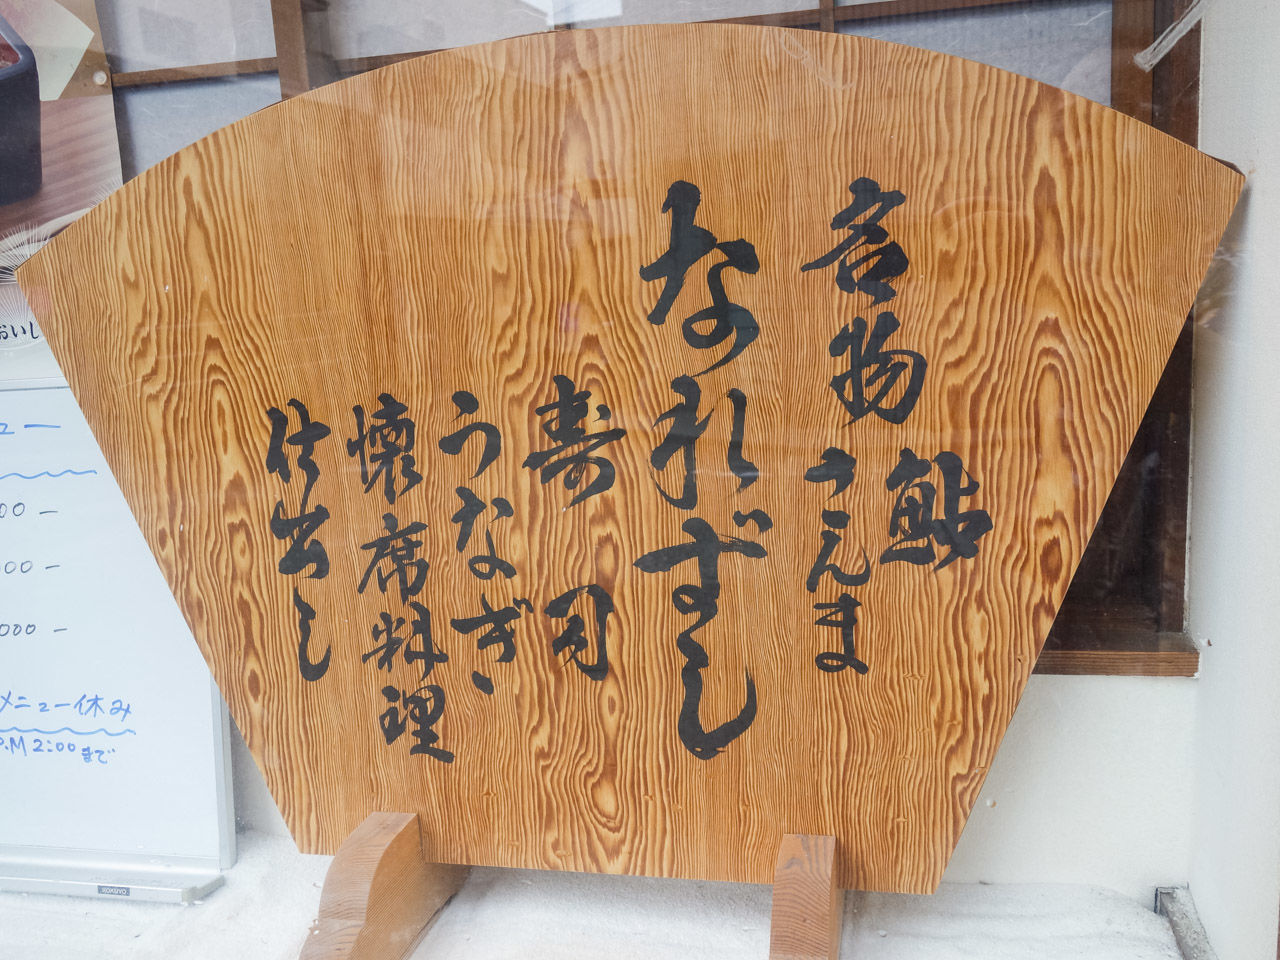 名物
鮎
さんま
なれずし
寿司
うなぎ
懐席料理
仕出し
おいし
ュー
00 -
000 -
000 -
メニュー休み
P.M 2:00まで
KOKUYO